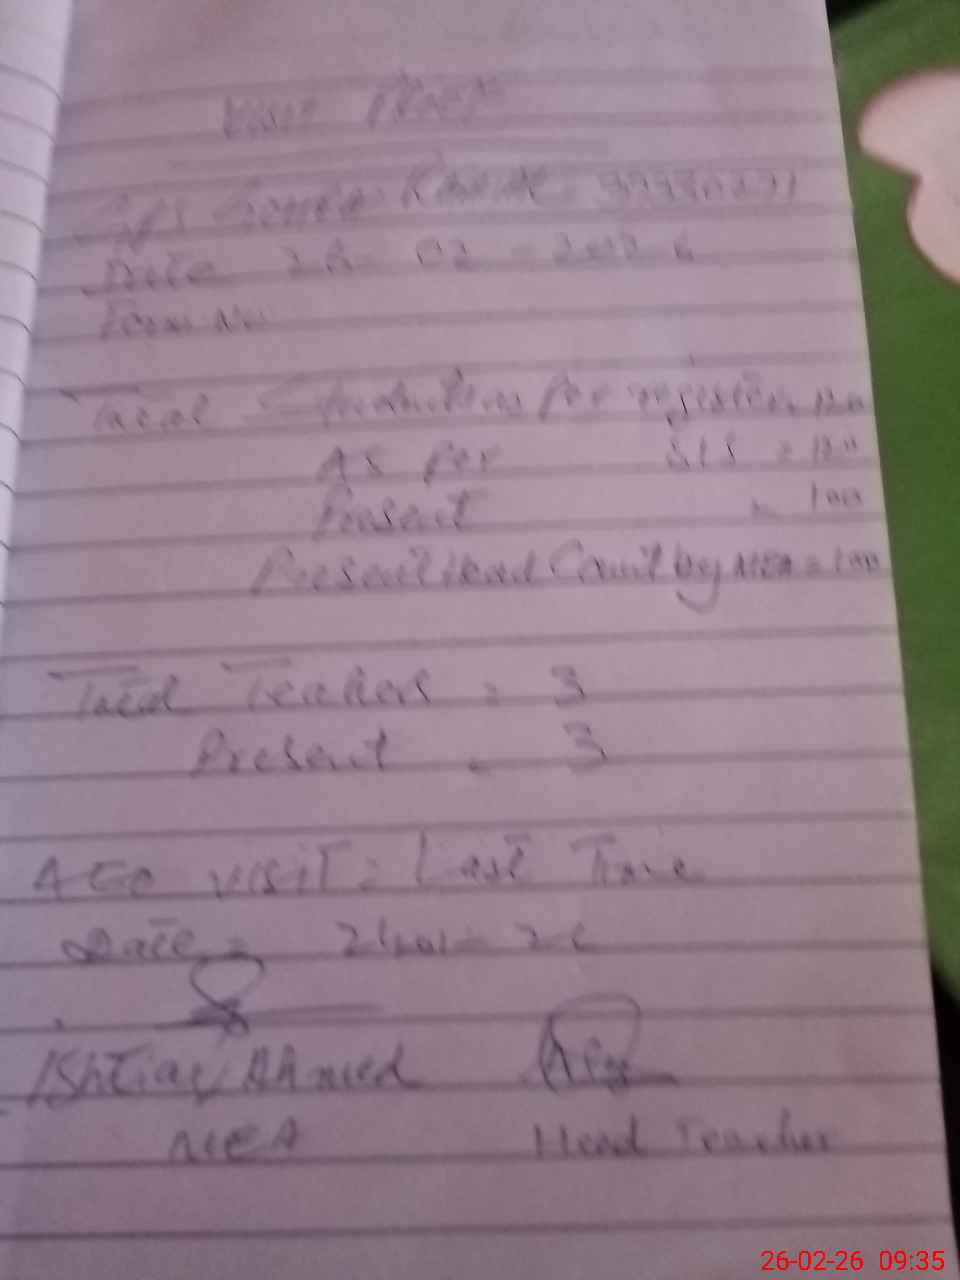 Visit Proof
GPS
Date 26-02-2026
Form No
Total Students as per register = 120
As per SIS = 120
Present = 100
Present Head Count by MEA = 100
Total Teachers = 3
Present = 3
AEO visit = Last Time
Date =
Ishtiaq Ahmed
MEA Head Teacher
26-02-26 09:35